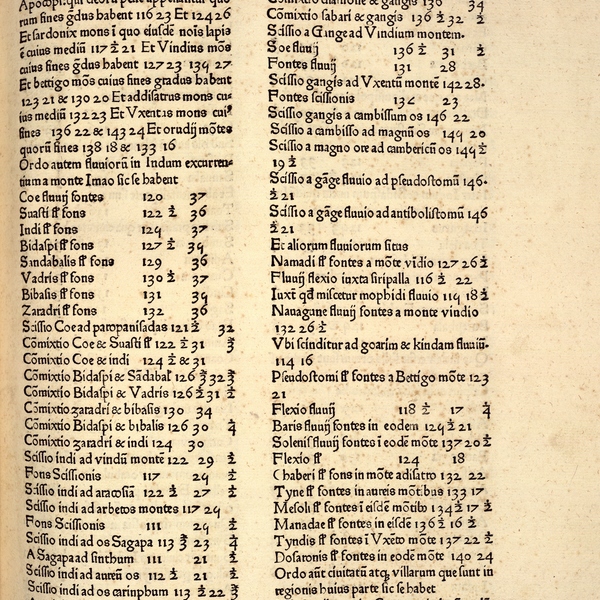 rum fines gᷤdus habent 116 23 Et 124 26
Et sardonix mons ī quo eiusdē noīs lapis
ē cuius mediū 117 ½ 21 Et Vindius mōs
cuius fines gᷤdus habent 127 23 134 27
Et bettigo mōs cuius fines gradus habent
123 21 & 130 20 Et addisatrus mons cu-
ius mediū 132 23 Et Vxentus mons cuiꝰ
fines 136 22 & 143 24 Et orudij mōtes
quorū fines 138 18 & 133 16
Ordo autem fluuiorū in Indum excurren-
tium a monte Imao sic se habent
Coe fluuij fontes 120 37
Suasti ff fons 122 ½ 36
Indi ff fons 124 37
Bidaspi ff fons 127 ½ 34
Sandabalis ff fons 129 36
Vadris ff fons 130 ½ 37
Bibasis ff fons 131 34
Zaradri ff fons 132 36
Scissio Coe ad paropanisadas 121 ½ 32
Cōmixtio Coe & Suasti ff 122 ½ 31
Cōmixtio Coe & indi 124 ½ & 31
Cōmixtio Bidaspi & Sādabal 126
Cōmixtio Bidaspi & Vadris 126 ½ 31 ½
Cōmixtio zaradri & bibasis 130 34
Cōmixtio Bidaspi & bibasis 126 30
Cōmixtio zaradri & indi 124 30
Scissio indi ad vindū montē 122 29 ½
Fons Scissionis 117 24 ½
Scissio indi ad aracosiā 122 ½ 27 ½
Scissio indi ad arbetos montes 117 24
Fons Scissionis 111 24 ½
Scissio indi ad os Sagapa 113 23
A Sagapa ad sinthum 111 21 ½
Scissio indi ad aureū os 112 ½ 21 ½
Scissio indi ad os carinphum 113 ½ 22
Cōmixtio sabari & gangis 136 ½ 32 ½
Scissio a Gange ad Vindium montem.
Soe fluuij 136 ½ 31 ½
Fontes fluuij 131 28
Scissio gangis ad Vxentū montē 142 28.
Fontes scissionis 132 23
Scissio gangis a cambissum os 146 22
Scissio a cambisso ad magnū os 144 20
Scissio a magno ore ad cambericū os 144 ½
19 ½
Scissio a gāge fluuio ad pseudostomū 146.
½ 21
Scissio a gāge fluuio ad antibolistomū 146
½ 21
Et aliorum fluuiorum situs
Namadi ff fontes a mōte vīdio 127 26 ½
Fluuij flexio iuxta siripalla 116 ½ 22
Iuxt̄ qd̄ miscetur mophidi fluuio 114 18 ½
Nauagune fluuij fontes a monte vindio
132 26 ½
Vbi scinditur ad goarim & kindam fluuiū.
114 16
Pseudostomi ff fontes a Bettigo mōte 123
21
Flexio fluuij 118 ½ 17
Baris fluuij fontes in eodem 124 ½ 21
Solenis fluuij fontes ī eodē mōte 137 20 ½
Flexio ff 124 18
Chaberi ff fons in mōte adisatro 132 22
Tyne ff fontes in aureis mōtibus 133 17
Mesoli ff fontes ī eisdē mōtibꝰ 134 ½ 17 ½
Manadae ff fontes in eisdē 136 ½ 16 ½
Tyndis ff fontes ī Vxēto mōte 137 22 ½
Dosaronis ff fontes in eodē mōte 140 24
Ordo aūt ciuitatū atqꝫ villarum que sunt in
regionis huius parte sic se habet